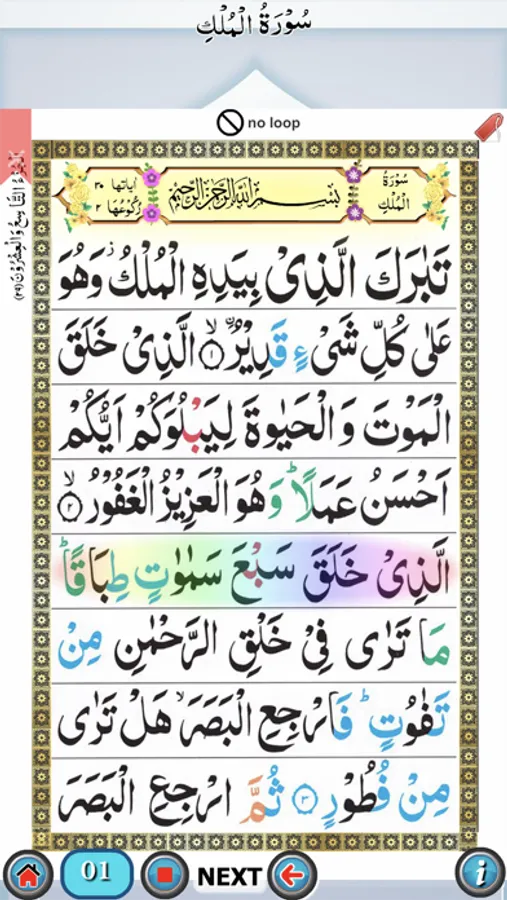 سُوْرَةُ الْمُلْكِ
no loop
اَلْجُزْءُ التَّاسِعُ وَالْعِشْرُوْنَ (٢٩)
سُوْرَةُ الْمُلْكِ
بِسْمِ اللّٰهِ الرَّحْمٰنِ الرَّحِيْمِ
اٰيَاتُهَا ٣٠
رُكُوْعُهَا ٢
تَبٰرَكَ الَّذِىْ بِيَدِهِ الْمُلْكُ ز وَهُوَ
عَلٰى كُلِّ شَىْءٍ قَدِيْرُ ۙ ۝١ الَّذِىْ خَلَقَ
الْمَوْتَ وَالْحَيٰوةَ لِيَبْلُوَكُمْ اَيُّكُمْ
اَحْسَنُ عَمَلًا ؕ وَهُوَ الْعَزِيْزُ الْغَفُوْرُ ۙ ۝٢
الَّذِىْ خَلَقَ سَبْعَ سَمٰوٰتٍ طِبَاقًا ؕ
مَا تَرٰى فِىْ خَلْقِ الرَّحْمٰنِ مِنْ
تَفٰوُتٍ ؕ فَارْجِعِ الْبَصَرَ ۙ هَلْ تَرٰى
مِنْ فُطُوْرٍ ۝٣ ثُمَّ ارْجِعِ الْبَصَرَ
01
NEXT
i